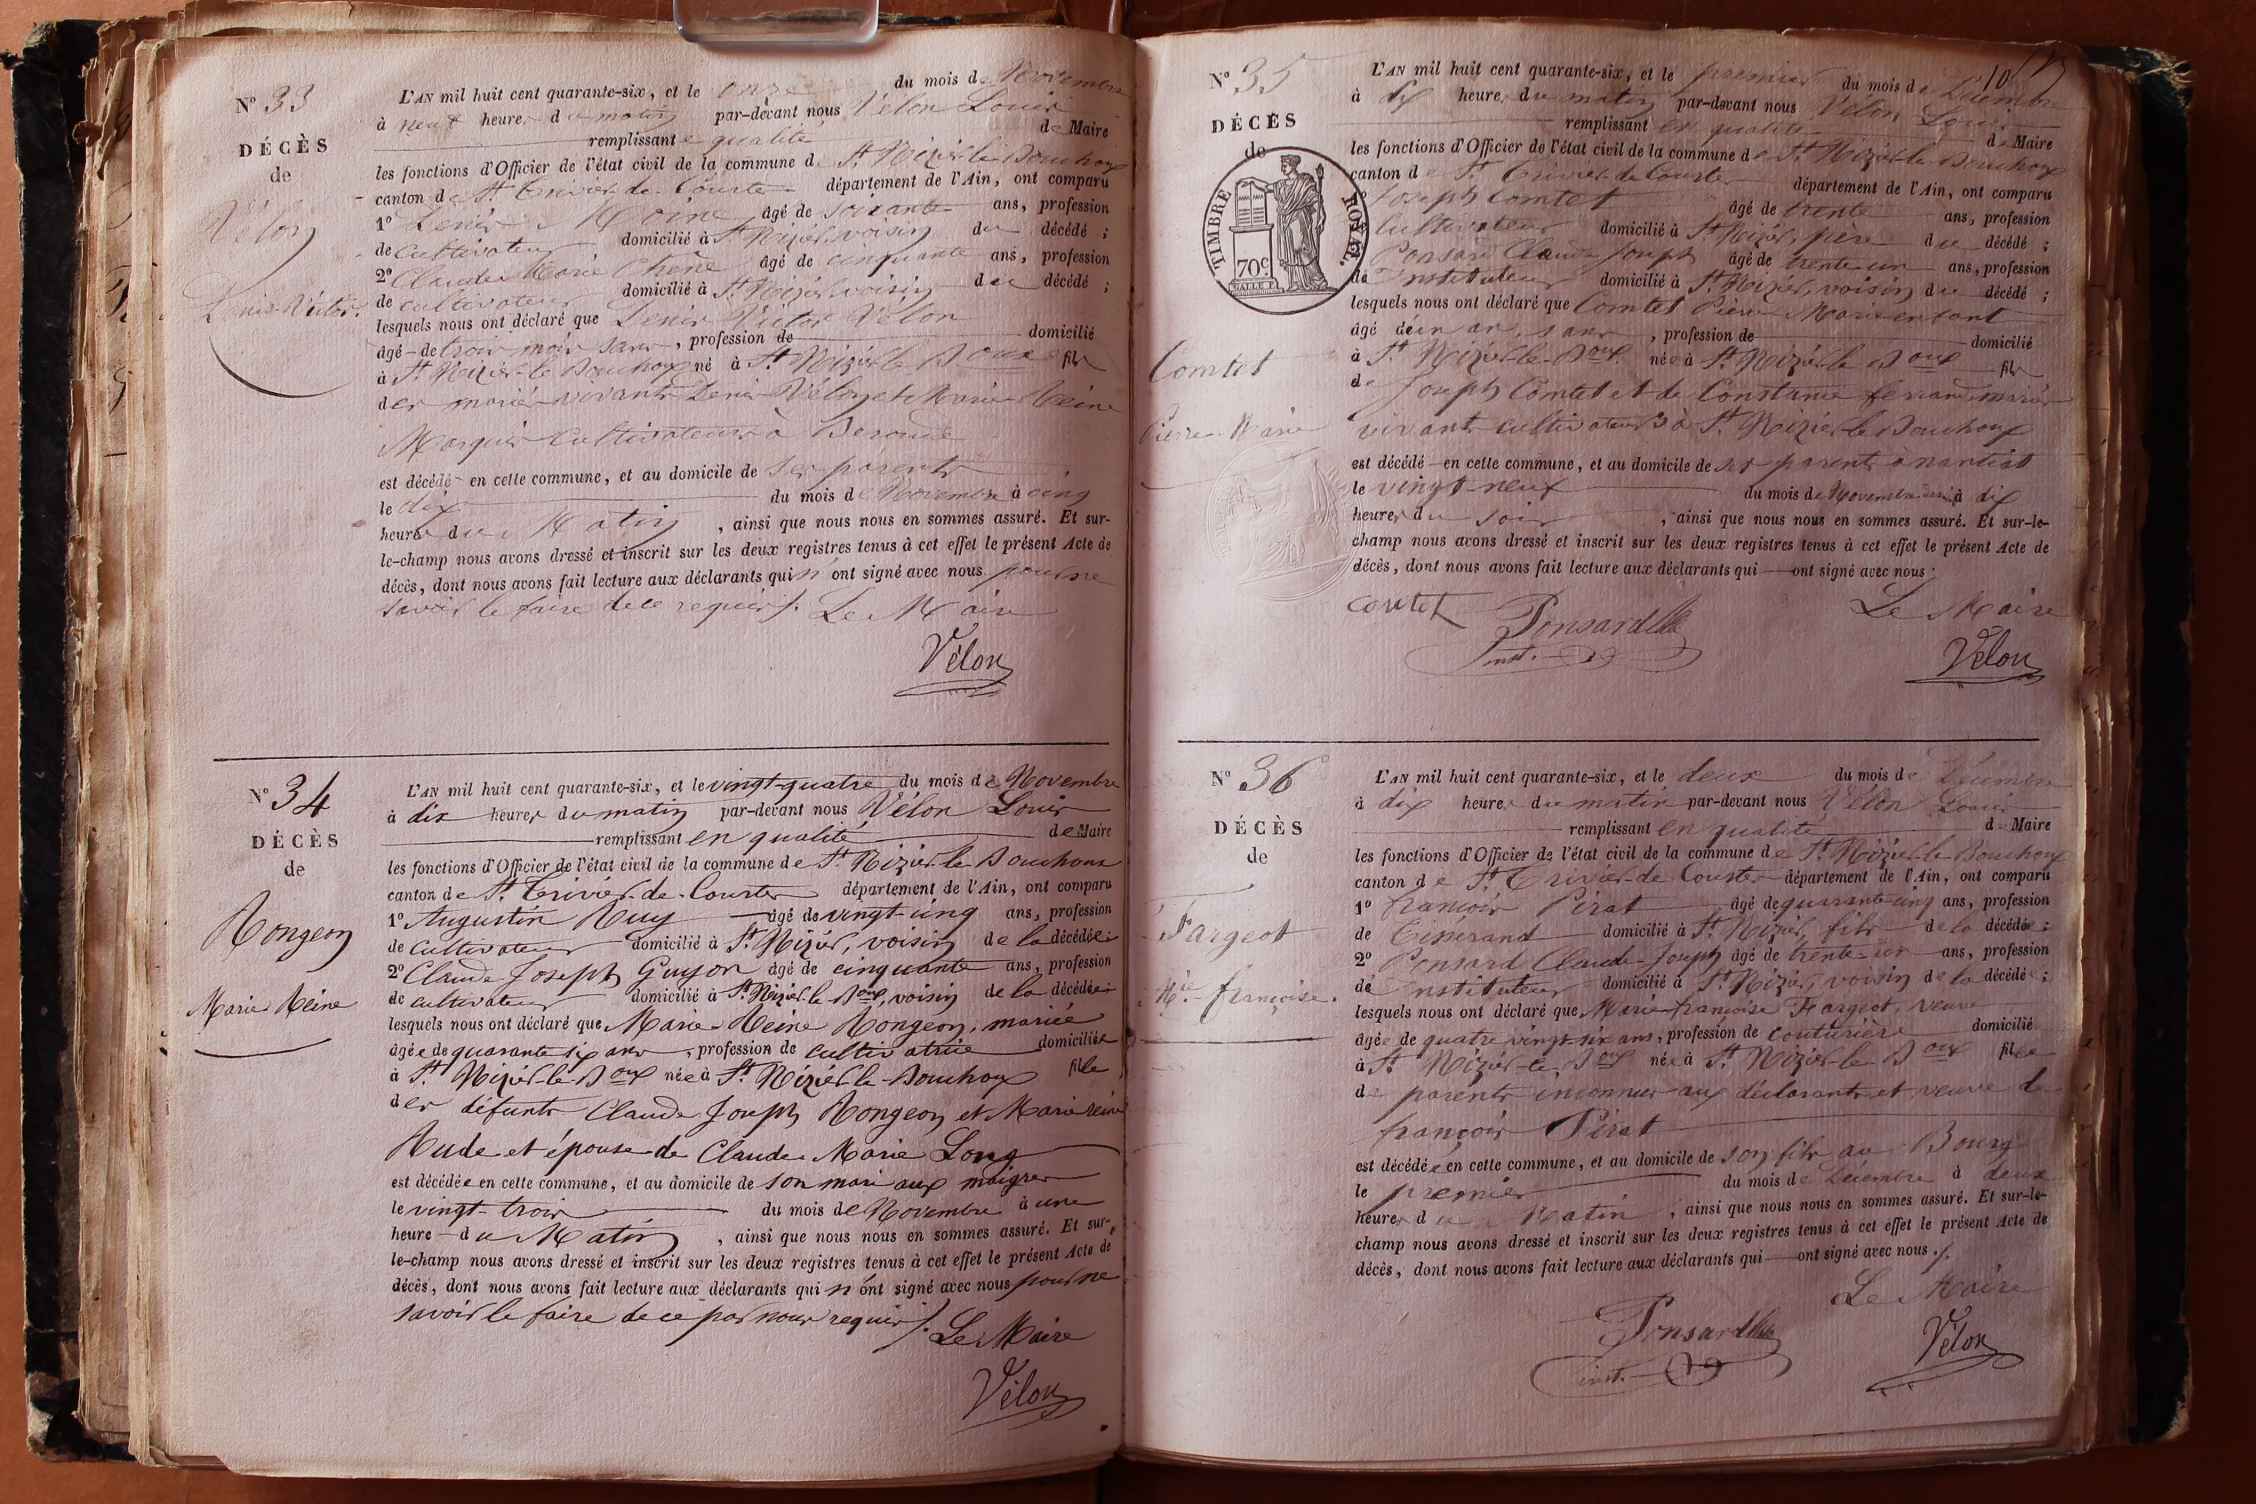 N° 33
DÉCÈS
de
Vélon
Denis Victor.
L'AN mil huit cent quarante-six, et le onze du mois de Novembre
à neuf heures du matin par-devant nous Vélon Louis
remplissant en qualité de Maire
les fonctions d'Officier de l'état civil de la commune de St. Nizier le Bouchoux
canton de St. Trivier-de-Courtes département de l'Ain, ont comparu
1° Denis Moine âgé de soixante ans, profession
de cultivateur domicilié à St. Nizier, voisin du décédé;
2° Claude Marie Chêne âgé de cinquante ans, profession
de cultivateur domicilié à St. Nizier, voisin du décédé;
lesquels nous ont déclaré que Denis Victor Vélon
âgé de trois mois sans, profession de domicilié
à St. Nizier-le-Bouchoux né à St. Nizier le Boux fils
des mariés vivants Denis Vélon et Marie Reine
Marguin cultivateurs à
est décédé en cette commune, et au domicile de ses parents
le dix du mois de Novembre à cinq
heures du Matin, ainsi que nous nous en sommes assuré. Et sur-
le-champ nous avons dressé et inscrit sur les deux registres tenus à cet effet le présent Acte de
décès, dont nous avons fait lecture aux déclarants qui n'ont signé avec nous pour ne
savoir le faire de ce requis /. Le Maire
Vélon
N° 34
DÉCÈS
de
Rongeon
Marie Reine
L'AN mil huit cent quarante-six, et le vingt-quatre du mois de Novembre
à dix heures du matin par-devant nous Vélon Louis
remplissant en qualité de Maire
les fonctions d'Officier de l'état civil de la commune de St. Nizier le Bouchoux
canton de St. Trivier-de-Courtes département de l'Ain, ont comparu
1° Augustin Ruy âgé de vingt-cinq ans, profession
de cultivateur domicilié à St. Nizier, voisin de la décédée;
2° Claude Joseph Guyon âgé de cinquante ans, profession
de cultivateur domicilié à St. Nizier le Boux, voisin de la décédée;
lesquels nous ont déclaré que Marie Reine Rongeon, mariée
âgée de quarante six ans, profession de cultivatrice domiciliée
à St. Nizier-le-Boux née à St. Nizier le Bouchoux fille
des défunts Claude Joseph Rongeon et Marie reine
Rude et épouse de Claude Marie Long
est décédée en cette commune, et au domicile de son mari aux maigres
le vingt-trois du mois de Novembre à une
heure du Matin, ainsi que nous nous en sommes assuré. Et sur-
le-champ nous avons dressé et inscrit sur les deux registres tenus à cet effet le présent Acte de
décès, dont nous avons fait lecture aux déclarants qui n'ont signé avec nous pour ne
savoir le faire de ce par nous requis /. Le Maire
Vélon
10
N° 35
DÉCÈS
de
TIMBRE ROYAL.
70c
Comtet
Pierre Marie
L'AN mil huit cent quarante-six, et le premier du mois de Décembre
à dix heures du matin par-devant nous Vélon Louis
remplissant en qualité de Maire
les fonctions d'Officier de l'état civil de la commune de St. Nizier le Bouchoux
canton de St. Trivier de Courtes département de l'Ain, ont comparu
Joseph Comtet âgé de trente ans, profession
cultivateur domicilié à St. Nizier, père du décédé;
Ponsard Claude Joseph âgé de trente-un ans, profession
de Instituteur domicilié à St. Nizier, voisin du décédé;
lesquels nous ont déclaré que Comtet Pierre Marie enfant
âgé de un an, sans, profession de domicilié
à St. Nizier-le-Boux né à St. Nizier le Boux fils
de Joseph Comtet et de Constance ferrand mariés
vivants cultivateurs à St. Nizier le Bouchoux
est décédé en cette commune, et au domicile de ses parents à
le vingt-neuf du mois de Novembre dernier à dix
heures du soir, ainsi que nous nous en sommes assuré. Et sur-le-
champ nous avons dressé et inscrit sur les deux registres tenus à cet effet le présent Acte de
décès, dont nous avons fait lecture aux déclarants qui ont signé avec nous:
Contet Ponsard Le Maire
inst. Vélon
N° 36
DÉCÈS
de
Fargeot
Mie. françoise.
L'AN mil huit cent quarante-six, et le deux du mois de Décembre
à dix heures du matin par-devant nous Vélon Louis
remplissant en qualité de Maire
les fonctions d'Officier de l'état civil de la commune de St. Nizier le Bouchoux
canton de St. Trivier-de Courtes département de l'Ain, ont comparu
1° françois Pérat âgé de quarante cinq ans, profession
de Tisserand domicilié à St. Nizier, fils de la décédée;
2° Ponsard Claude Joseph âgé de trente-un ans, profession
de Instituteur domicilié à St. Nizier, voisin de la décédée;
lesquels nous ont déclaré que Marie françoise Fargeot, veuve
âgée de quatre vingt-six ans, profession de couturière domicilié
à St. Nizier-le-Boux née à St. Nizier-le-Boux fille
de parents inconnus aux déclarants et veuve de
françois Pérat
est décédée en cette commune, et au domicile de son fils au Bourg
le premier du mois de Décembre à deux
heures du Matin, ainsi que nous nous en sommes assuré. Et sur-le-
champ nous avons dressé et inscrit sur les deux registres tenus à cet effet le présent Acte de
décès, dont nous avons fait lecture aux déclarants qui ont signé avec nous /.
Le Maire
Ponsard Vélon
inst.